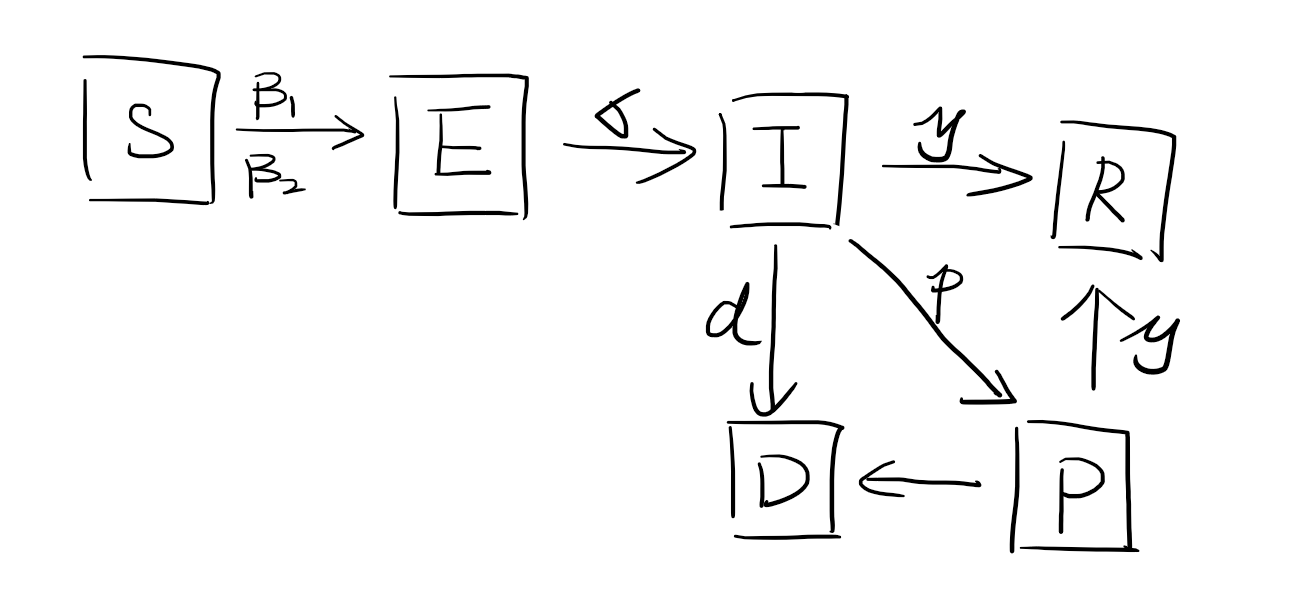 S
β₁
β₂
E
σ
I
y
R
d
p
y
D
P